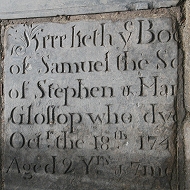 Here lieth ye Bod
of Samuel the So
of Stephen & Mar
Glossop who dy
Octr. the 18th 174
Aged 2 Yrs & 7 mo